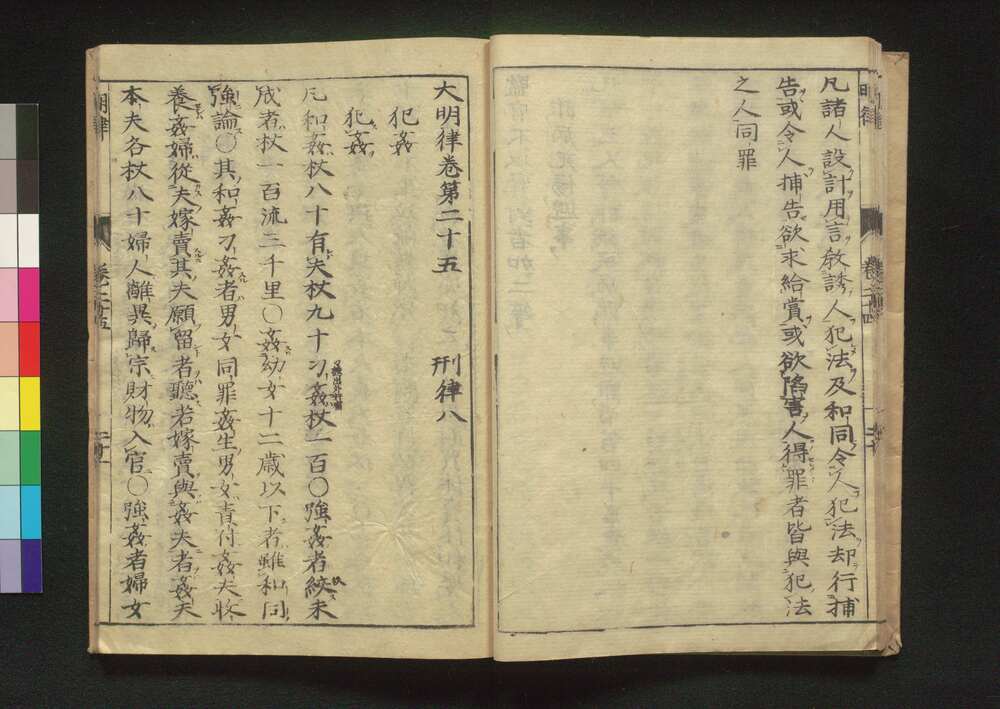 凡諸人設計用言教誘人犯法及和同令人犯法却行捕
告或令人捕告欲求給賞或欲陷害人得罪者皆與犯法
之人同罪
大明律卷第二十五 刑律八
犯姦
犯姦
凡和姦杖八十有夫杖九十刁姦杖一百○強姦者絞未
成者杖一百流三千里○姦幼女十二歲以下者雖和同
強論○其和姦刁姦者男女同罪姦生男女責付姦夫收
養姦婦從夫嫁賣其夫願留者聽若嫁賣與姦夫者姦夫
本夫各杖八十婦人離異歸宗財物入官○強姦者婦女